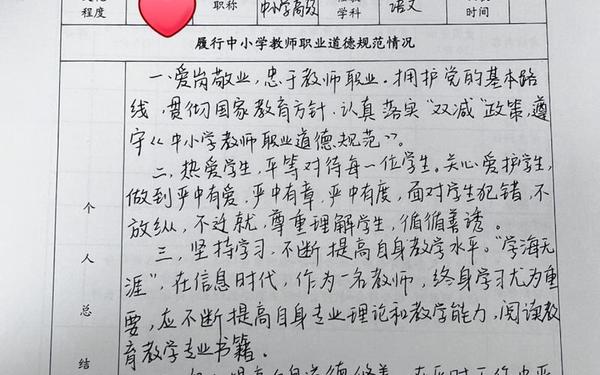 程度 职称 中小学高级 学科 语文 时间
履行中小学教师职业道德规范情况
一、爱岗敬业，忠于教师职业。拥护党的基本路
线，贯彻国家教育方针，认真落实“双减”政策，遵
守《中小学教师职业道德规范》。
二、热爱学生，平等对待每一位学生。关心爱护学生，
做到严中有爱，严中有章，严中有度，面对学生犯错，不
放纵，不迁就，尊重理解学生，循循善诱。
三、坚持学习，不断提高自身教学水平。“学海无
涯”，在信息时代，作为一名教师，终身学习尤为重
要，应不断提高自身专业理论和教学能力，阅读教
育教学专业书籍。
个人总结